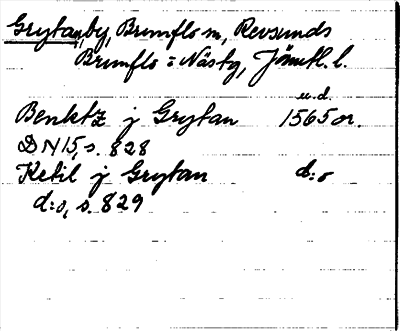 Grytan, by, Brunflo sn, Revsunds
Brunflo = Näsby, Jämtl. l.
u.d.
Benktz j Grytan 1565 or.
DN 15, s. 828
Ketil j Grytan d:o
d:o, s. 829